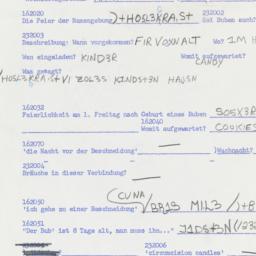 162020 232002
Die Feier der Namengebung )+HOSL3KRA.St Gab Buben auch?
232003
Beschreibung: Wann vorgekommen? FIR VOXNALT Wo? IM H
Wen eingeladen? KIND3R Womit aufgewartet? CANDY
Was gesagt?
HOSL3KRA.St VI ZOL3S KINDSt3N HAJSN
162032
Feierlichkeit am 1. Freitag nach Geburt eines Buben SOSX3R
162040
Womit aufgewartet? COOKIES
162070
'die Nacht vor der Beschneidung' — (Wachnacht?
232004
Bräuche in dieser Verbindung? —
162050 (CU NA)
'ich gehe zu einer Beschneidung' / BRIS MIL3
162051
"Der Bub' ist 8 Tage alt, man muss ihn..." JIDSt3N
232006
'circumcision candles'